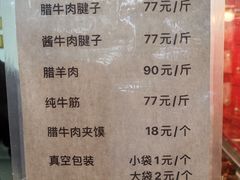 腊牛肉腱子 77元/斤
酱牛肉腱子 77元/斤
腊羊肉 90元/斤
纯牛筋 77元/斤
腊牛肉夹馍 18元/个
真空包装 小袋1元/个
大袋2元/个